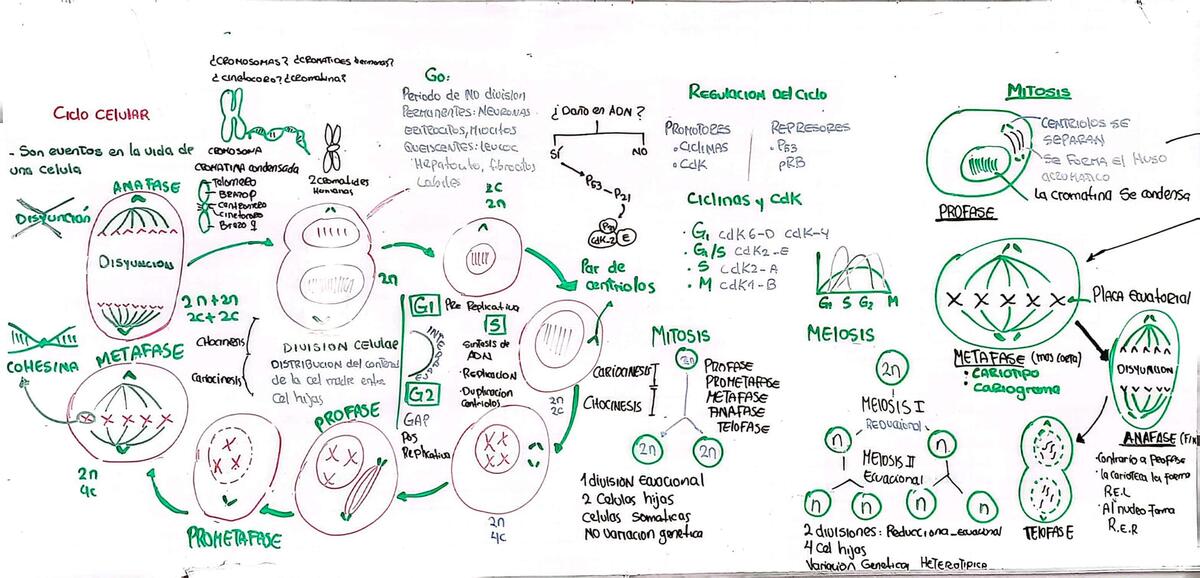 ¿CROMOSOMAS? ¿CROMATIDES hermanas?
¿cinetocoro? ¿cromatina?
Ciclo CELULAR
- Son eventos en la vida de
una celula
CROMOSOMA
CROMATINA condensada
Telomero
Brazo P
Centromero
Cinetocoro
Brazo q
2 CROMATIDES
Hermanas
Go:
Periodo de NO division
PERMANENTES: NEURONAS
ERITROCITOS, MIOCITOS
QUIESCENTES: LEUCOC
Hepatocito, fibrocitos
Labiles
2C
2n
¿Daño en ADN?
SÍ
NO
P53
P21
P21
CdK-2
E
ANAFASE
DISYUNCIÓN
DISYUNCION
2n+2n
2C+2C
2n
COHESINA
METAFASE
CitOCINESIS
Cariocinesis
2n
4C
DIVISION CELULAR
DISTRIBUCION del contenido
de la cel madre entre
Cel hijas
G1
PRE Replicativa
INTERFASE
S
SINTESIS DE
ADN
Replicacion
Duplicacion
Centriolos
G2
GAP
Pos
Replicativa
Par de
centriolos
2n
2C
2n
4C
PROFASE
PROMETAFASE
REGULACION DEL Ciclo
PROMOTORES
• Ciclinas
• CdK
REPRESORES
• P53
pRB
Ciclinas y CdK
• G1 CdK6-D CdK-4
• G1/S CdK2-E
• S CdK2-A
• M CdK1-B
G1 S G2 M
MITOSIS
2n
CARIOCINESIS
CitOCINESIS
PROFASE
PROMETAFASE
METAFASE
ANAFASE
TELOFASE
2n
2n
1 DIVISION Ecuacional
2 Celulas hijas
Celulas somaticas
No variacion genetica
MEIOSIS
2n
MEIOSIS I
REDUCIONAL
n
n
MEIOSIS II
Ecuacional
n
n
n
n
2 divisiones: Reducciona_ecuacional
4 Cel hijos
Variacion Genetica HETEROTIPICA
MITOSIS
CENTRIOLOS SE
SEPARAN
Se forma el HUSO
ACROMATICO
La cromatina Se condensa
PROFASE
PLACA Ecuatorial
METAFASE (mas corta)
• CARIOTIPO
• Cariograma
DISYUNCION
ANAFASE (FIN
• Contrario a Profase
• la carioteca la forma
R.E.L
• Al nucleo forma
R.E.R
TELOFASE